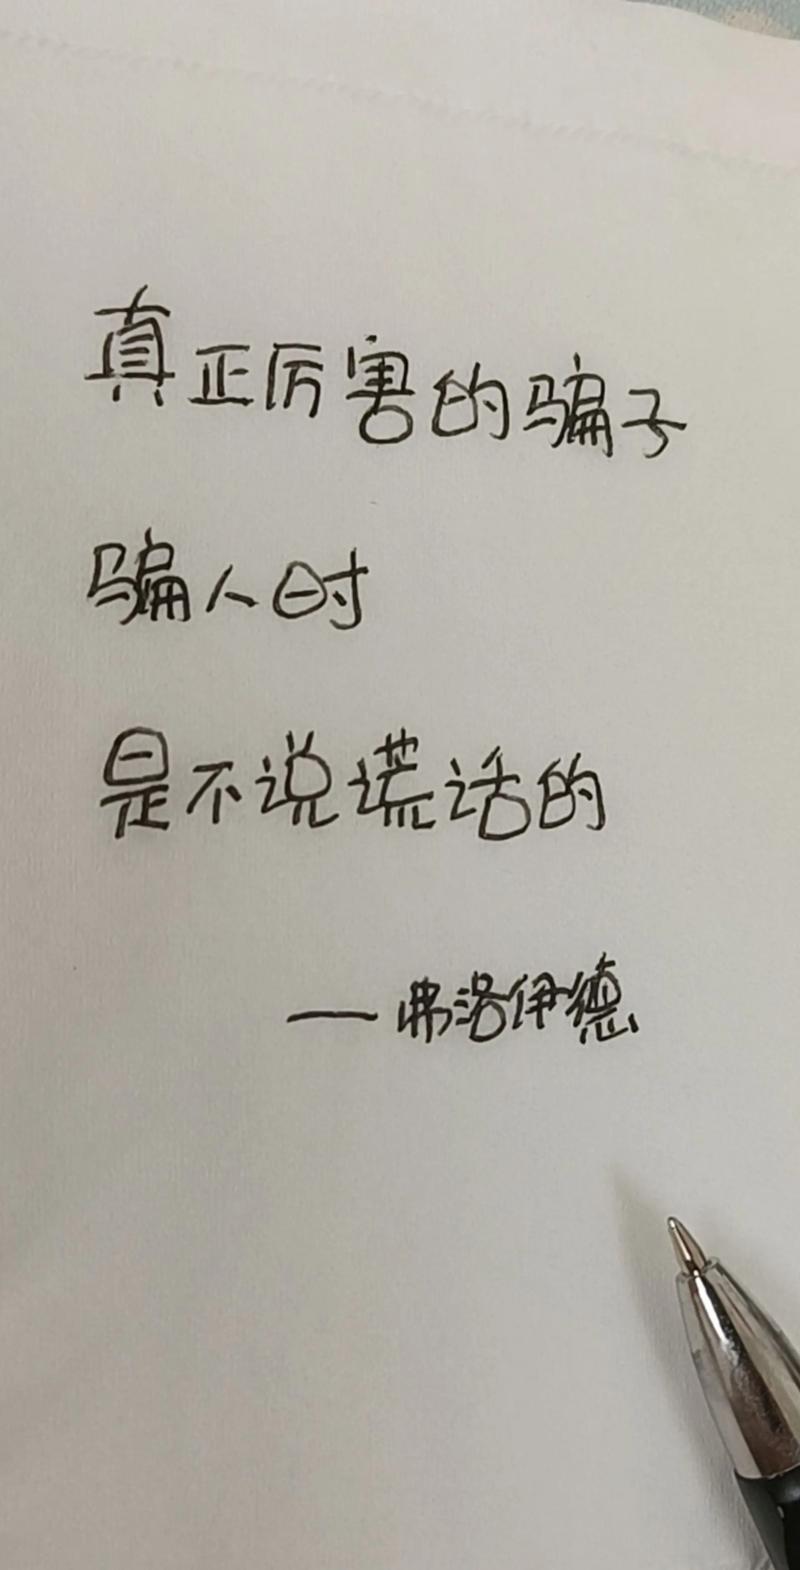 真正厉害的骗子
骗人时
是不说谎话的
—弗洛伊德